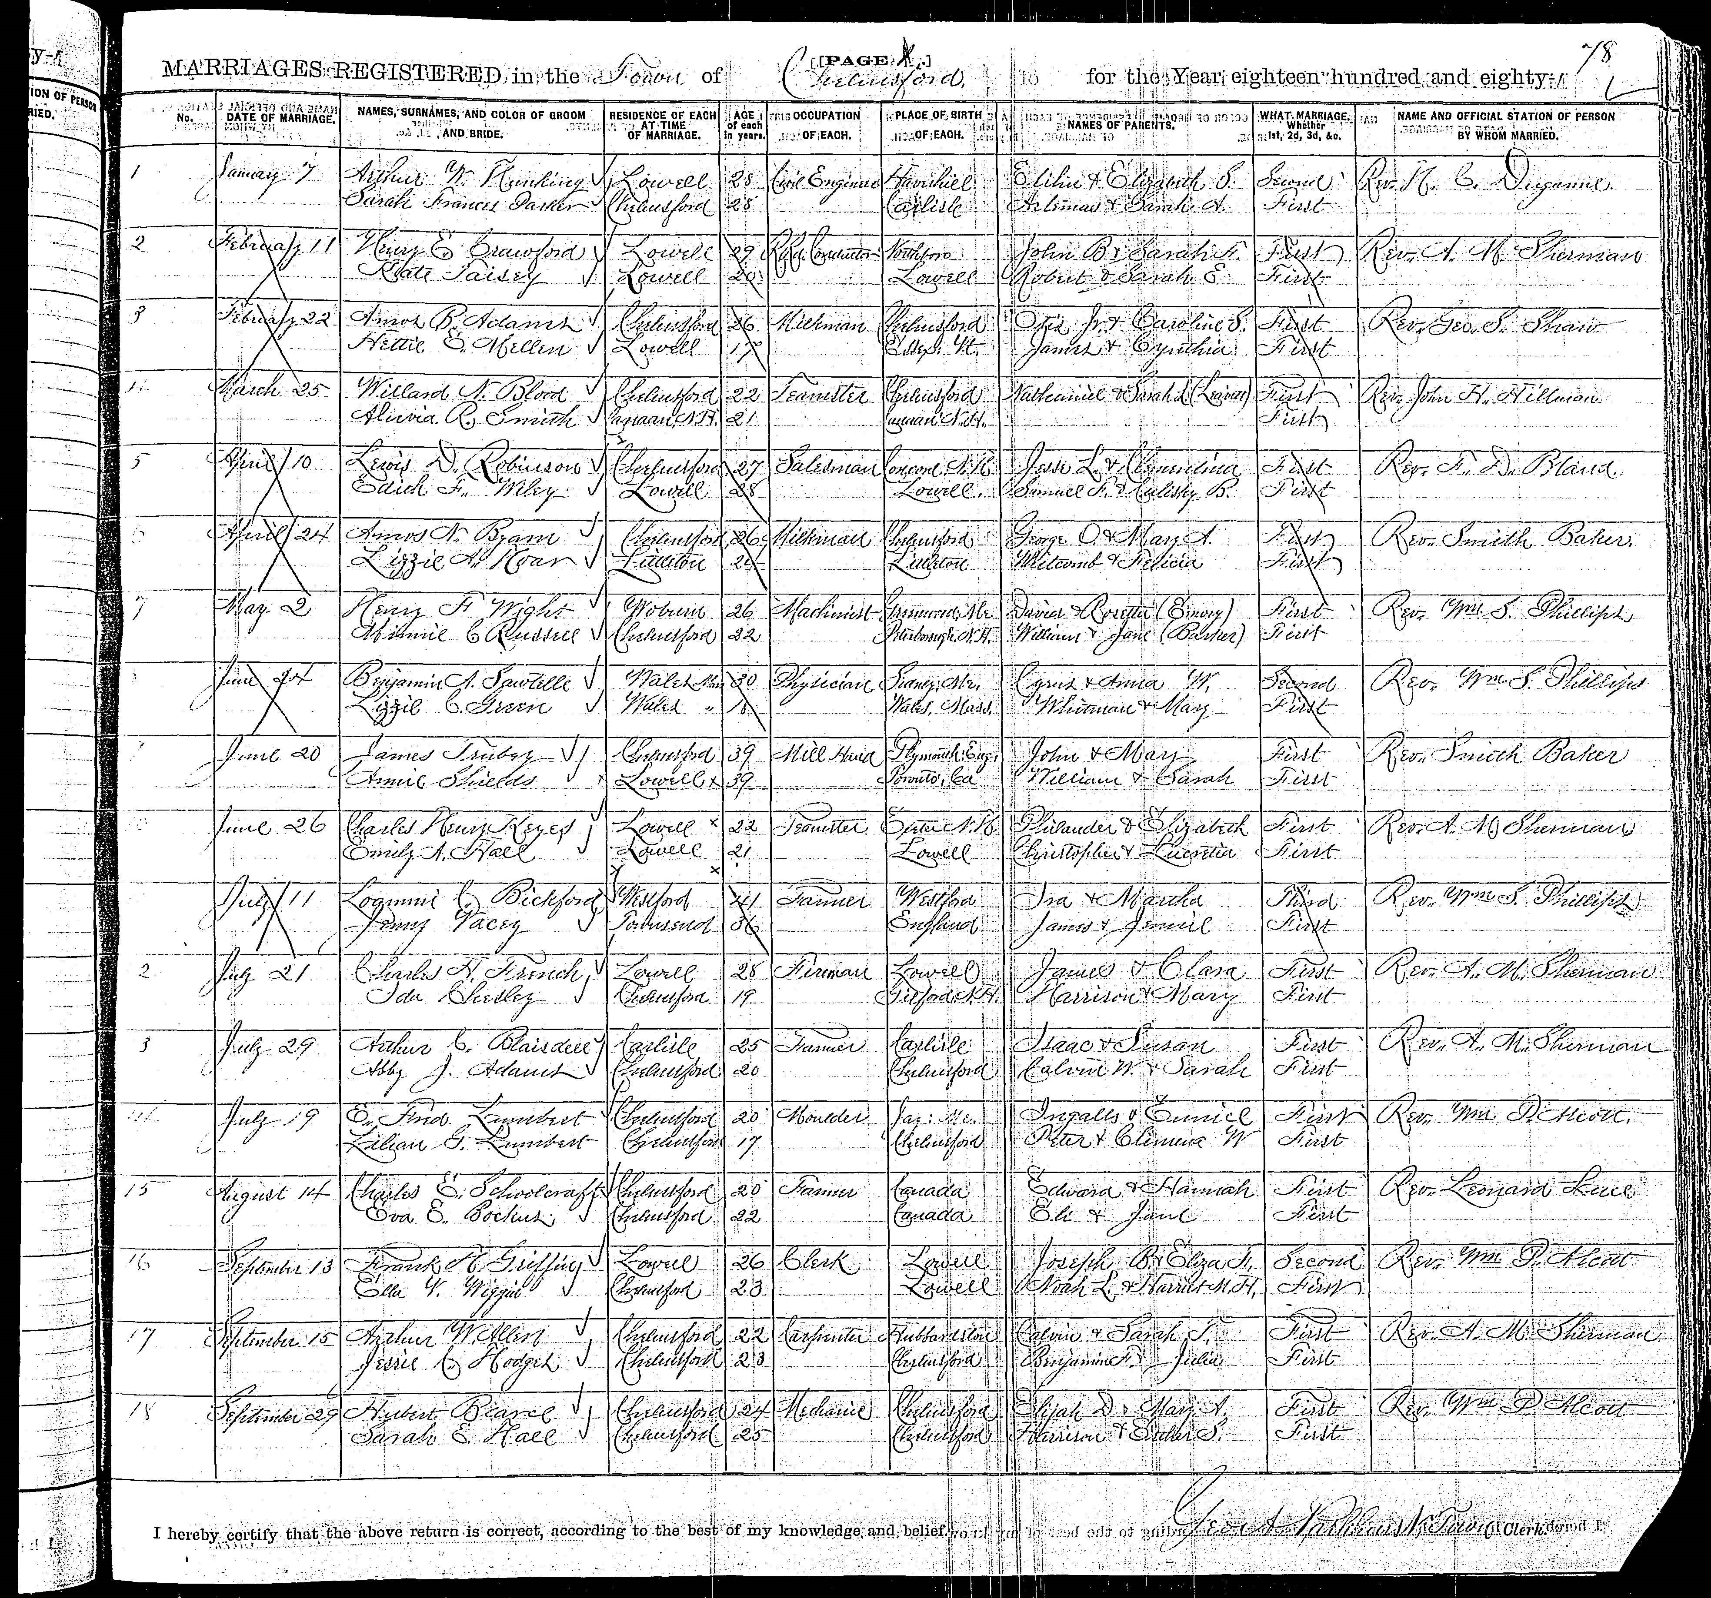 78
[PAGE 1.]
MARRIAGES REGISTERED in the Town of Chelmsford for the Year eighteen hundred and eighty-
No. DATE OF MARRIAGE. NAMES, SURNAMES, AND COLOR OF GROOM AND BRIDE. RESIDENCE OF EACH AT TIME OF MARRIAGE. AGE of each in years. OCCUPATION OF EACH. PLACE OF BIRTH OF EACH. NAMES OF PARENTS. WHAT MARRIAGE, Whether 1st, 2d, 3d, &c. NAME AND OFFICIAL STATION OF PERSON BY WHOM MARRIED.
1 January 7 Arthur W. Hunking Lowell 28 Civil Engineer Haverhill Elihu & Elizabeth S. Second Rev. H. C.
Sarah Frances Parker Chelmsford 28 Carlisle Artemas & Sarah A. First
2 February 11 Henry E Crawford Lowell 29 R.R. Conductor John B & Sarah F. First Rev. A. M. Sherman
Kate Lowell 20 Lowell Robert & Sarah E. First
3 February 22 Amos B. Adams Chelmsford 26 Milkman Chelmsford Otis Jr. & Caroline S. First Rev. Geo. S. Shaw
Hettie E. Mellen Lowell 17 Essex, Vt. James & Cynthia First
4 March 25 Willard N. Blood Chelmsford 22 Teamster Chelmsford Nathaniel & Sarah L First Rev. John H. Hillman
R. Smith Canaan N.H. 21 Canaan N.H. First
5 April 10 Lewis D. Robinson Chelmsford 27 Salesman Concord N.H. Jesse L. & First Rev. F. D. Bland
Edith F. Wiley Lowell 28 Lowell Samuel F. & B. First
6 April 24 Amos N. Byam Chelmsford 26 Milkman Chelmsford George O & Mary A. First Rev. Smith Baker
Lizzie A. Hoar Littleton 24 Littleton Witcomb & Felicia First
7 May 2 Henry F. Wight Woburn 26 Machinist David & Rosetta (Emory) First Rev. Wm S. Phillips
Minnie C Russell Chelmsford 22 Peterborough N.H. William & Jane (Barker) First
June 24 Benjamin A. Sawtelle Wales Mass 30 Physician Sidney, Me. Cyrus & Anna W. Second Rev. Wm S. Phillips
Lizzie C. Green Wales " 18 Wales, Mass. Whitman & Mary First
June 20 James Chelmsford 39 Mill Hand Plymouth Eng. John & Mary First Rev. Smith Baker
Annie Shields Lowell 39 Toronto, Ca William & Sarah First
June 26 Charles Henry Keyes Lowell 22 Teamster Exeter N.H. Philander & Elizabeth First Rev. A. M Sherman
Emily A. Hall Lowell 21 Lowell Christopher & First
July 11 Loammi C. Bickford Westford 41 Farmer Westford Ira & Martha Third Rev. Wm S. Phillips
Jenny Vacey Townsend 36 England James & Jennie First
2 July 21 Charles H. French Lowell 28 Fireman Lowell James & Clara First Rev. A. M. Sherman
Ida Chesley Chelmsford 19 Gilford N.H. Harrison & Mary First
3 July 29 Arthur C. Blaisdell Carlisle 25 Farmer Carlisle Isaac & Susan First Rev. A. M. Sherman
Abby J. Adams Chelmsford 20 Chelmsford Calvin W. & Sarah First
July 19 E. Fred Lambert Chelmsford 20 Moulder Jay, Me. Ingalls & Eunice First Rev. Wm P. Alcott
Lilian G. Lambert Chelmsford 17 Chelmsford Peter & W First
15 August 14 Charles E. Schoolcraft Chelmsford 20 Farmer Canada Edward & Hannah First Rev. Leonard Luce
Eva E. Bockus Chelmsford 22 Canada Eli & Jane First
16 September 13 Frank H. Griffin Lowell 26 Clerk Lowell Joseph B & Eliza A. Second Rev. Wm P. Alcott
Ella V. Wiggin Chelmsford 23 Lowell Noah L & Harriet M.H. First
17 September 15 Arthur W Allen Chelmsford 22 Carpenter Hubbardston Calvin & Sarah J. First Rev. A. M. Sherman
Jessie C. Hodges Chelmsford 23 Chelmsford Benjamin F. & Julia First
18 September 29 Hubert Bearce Chelmsford 24 Mechanic Chelmsford Elijah D & Mary A. First Rev. Wm P Alcott
Sarah E Hall Chelmsford 25 Chelmsford Harrison & S. First
I hereby certify that the above return is correct, according to the best of my knowledge and belief. Town Clerk